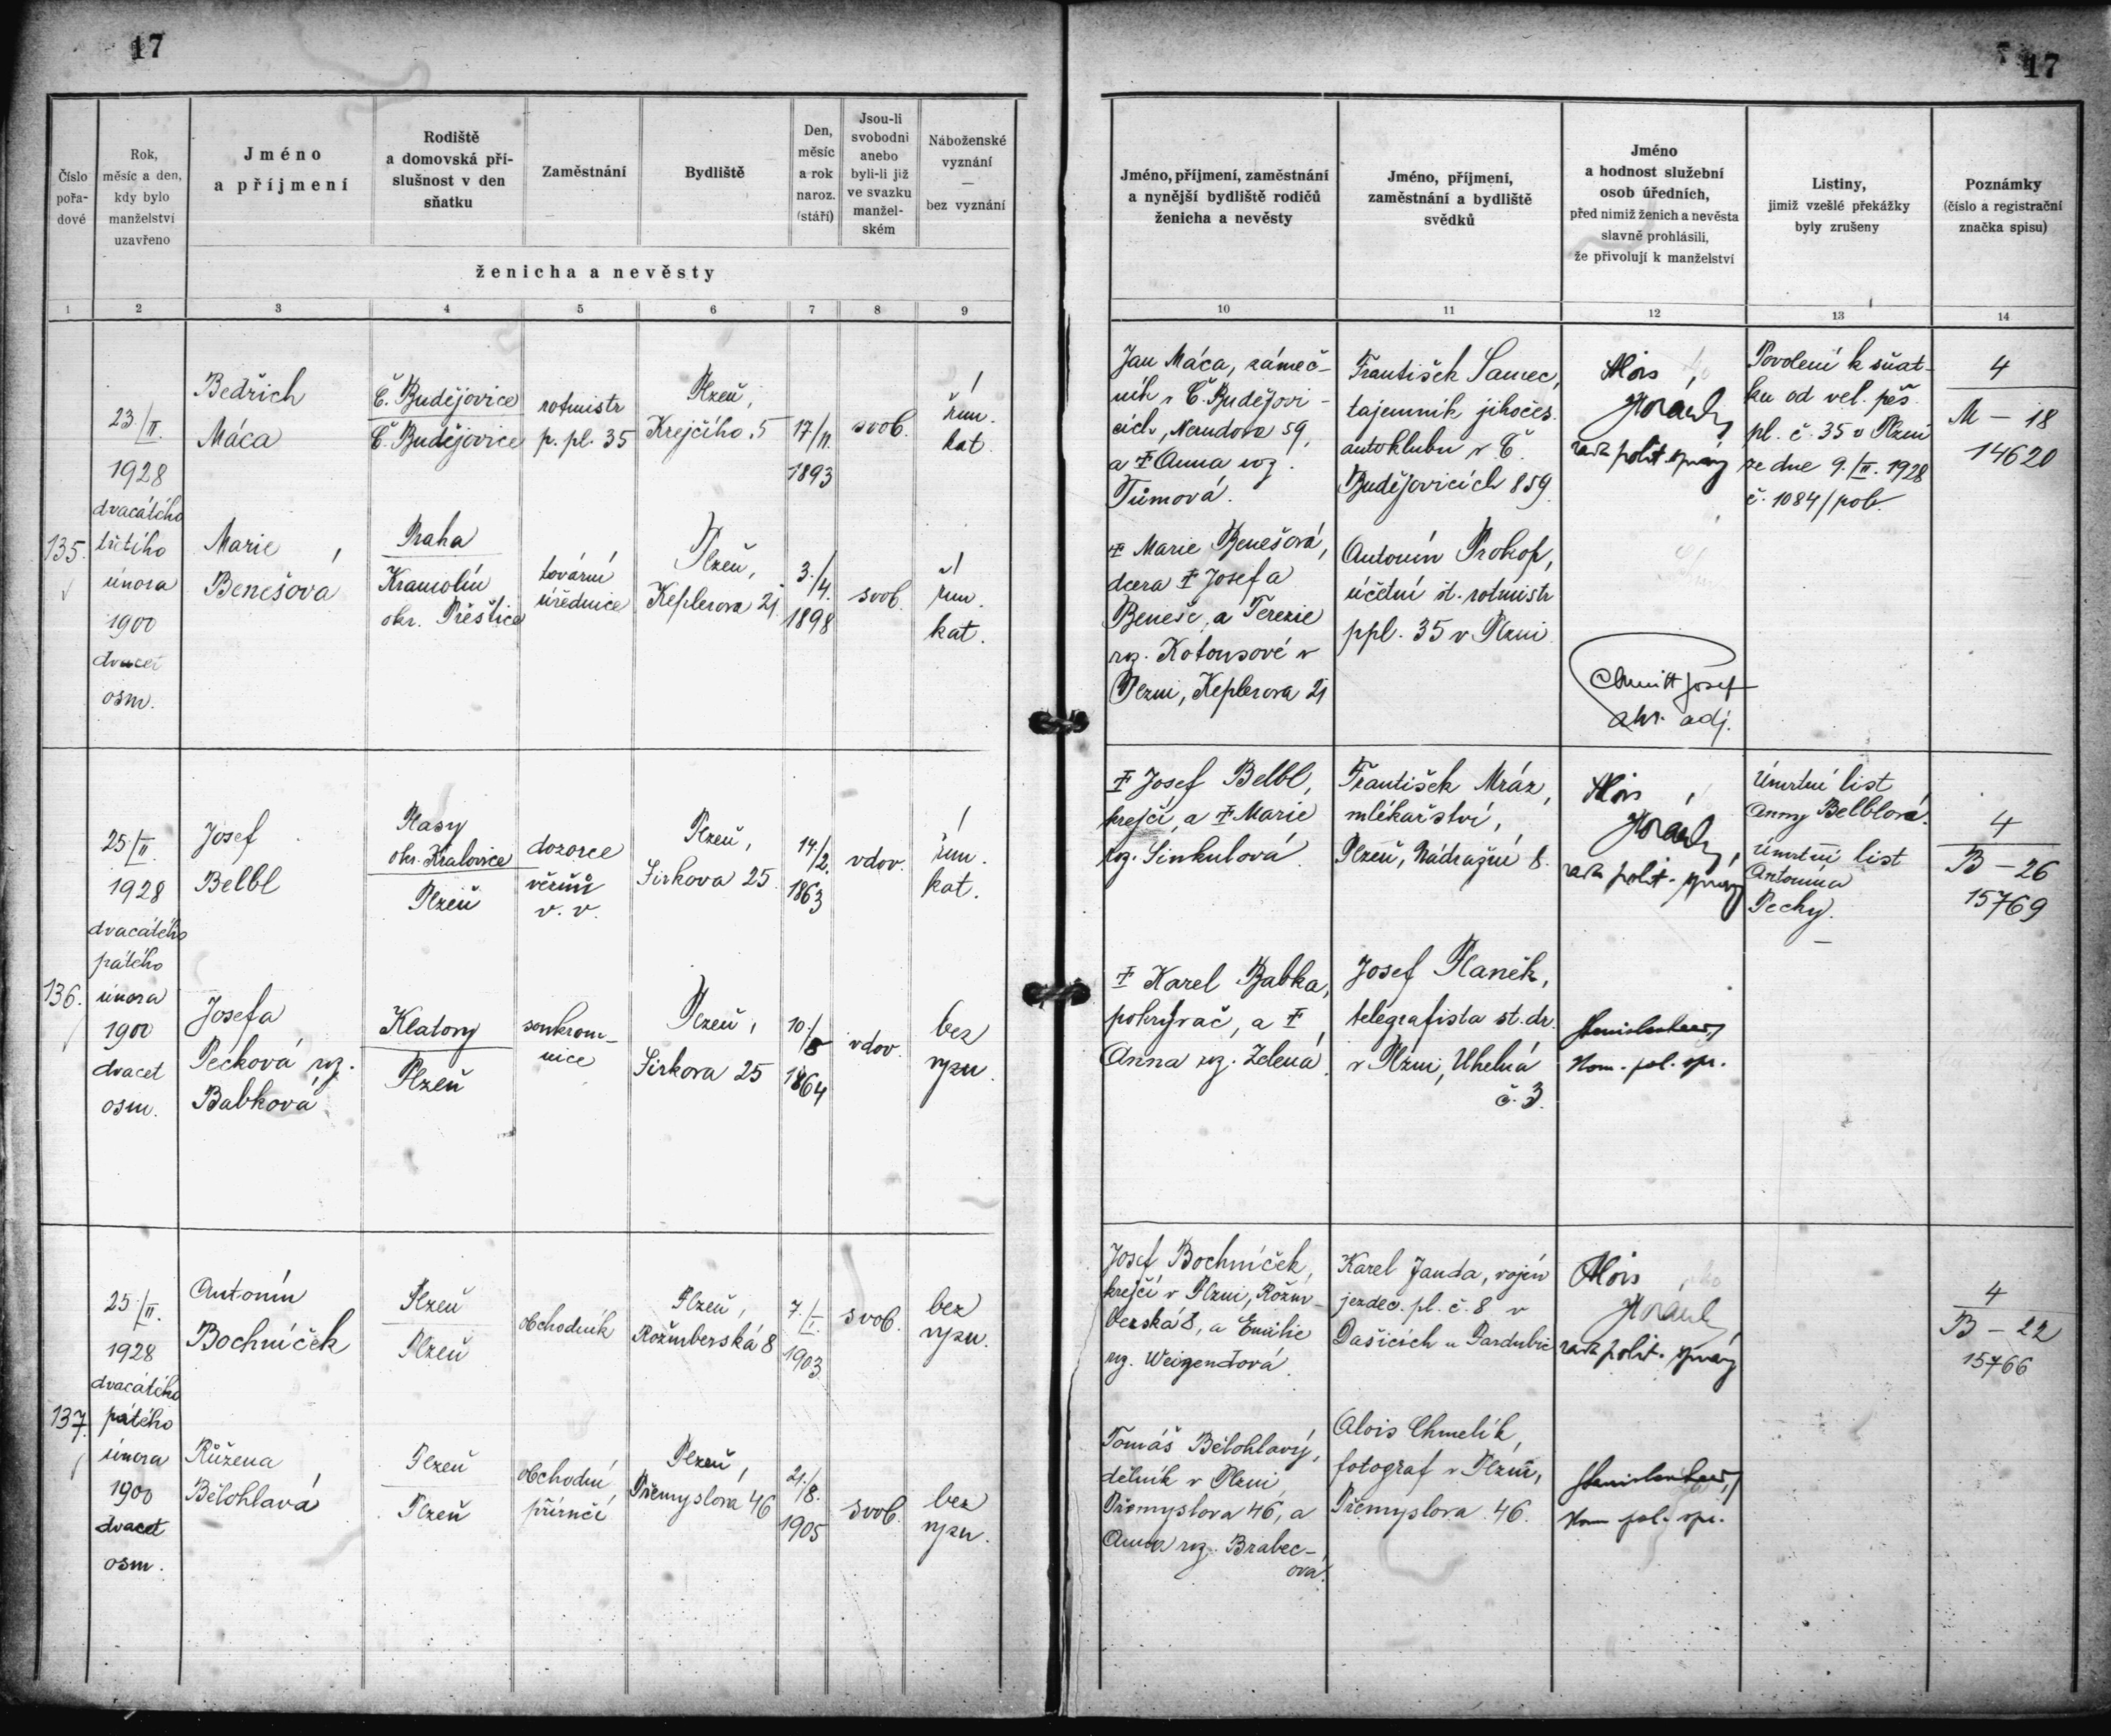 17
17
Číslo
pořa-
dové
Rok,
měsíc a den,
kdy bylo
manželství
uzavřeno
Jméno
a příjmení
Rodiště
a domovská pří-
slušnost v den
sňatku
Zaměstnání
Bydliště
Den,
měsíc
a rok
naroz.
(stáří)
Jsou-li
svobodni
anebo
byli-li již
ve svazku
manžel-
ském
Náboženské
vyznání
—
bez vyznání
ženicha a nevěsty
Jméno, příjmení, zaměstnání
a nynější bydliště rodičů
ženicha a nevěsty
Jméno, příjmení,
zaměstnání a bydliště
svědků
Jméno
a hodnost služební
osob úředních,
před nimiž ženich a nevěsta
slavně prohlásili,
že přivolují k manželství
Listiny,
jimiž vzešlé překážky
byly zrušeny
Poznámky
(číslo a registrační
značka spisu)
1 2 3 4 5 6 7 8 9
10 11 12 13 14
135.
23./II.
1928
dvacátého
třetího
února
1900
dvacet
osm.
Bedřich
Máca
Č. Budějovice
Č. Budějovice
rotmistr
p. pl. 35
Plzeň,
Krejčího 5
17/11.
1893
svob.
řím.
kat.
Marie
Benešová
Praha
Kramolín
okr. Přeštice
tovární
úřednice
Plzeň,
Keplerova 21
3./4.
1898
svob.
řím.
kat.
Jan Máca, zámeč-
ník v Č. Budějovi-
cích, Nerudova 59,
a ‡ Anna roz.
Tůmová.
‡ Marie Benešová,
dcera ‡ Josefa
Beneše, a Terezie
roz. Kotousové v
Plzni, Keplerova 21
František Samec,
tajemník jihočes.
autoklubu v Č.
Budějovicích 859.
Antonín Prokop,
účetní št. rotmistr
ppl. 35 v Plzni
Alois
rada polit. správy
Schmitt Josef
adj.
Povolení k sňat-
ku od vel. pěš.
pl. č. 35 v Plzni
ze dne 9./II. 1928
č. 1084/pob.
4
M – 18
14620
136.
25/II.
1928
dvacátého
pátého
února
1900
dvacet
osm.
Josef
Belbl
Plasy
okr. Kralovice
Plzeň
dozorce
věznů
v. v.
Plzeň,
Sirkova 25
14./2.
1863
vdov.
řím.
kat.
Josefa
Pechová roz.
Babková
Klatovy
Plzeň
soukrom-
nice
Plzeň,
Sirkova 25
10./8
1864
vdov.
bez
vyzn.
‡ Josef Belbl,
krejčí, a ‡ Marie
roz. Sinkulová.
‡ Karel Babka,
pokrývač, a ‡
Anna roz. Zelená.
František Mráz,
mlékařství,
Plzeň, Nádražní 8.
Josef Planěk,
telegrafista st. dr.
v Plzni, Uhelná
č. 3.
Alois
rada polit. správy
kom. pol. spr.
Úmrtní list
Anny Belblové.
Úmrtní list
Antonína
Pechy.
4
B – 26
15769
137.
25./II.
1928
dvacátého
pátého
února
1900
dvacet
osm.
Antonín
Bochníček
Plzeň
Plzeň
obchodník
Plzeň,
Rožmberská 8
7./I.
1903
svob.
bez
vyzn.
Růžena
Bělohlavá
Plzeň
Plzeň
obchodní
příručí
Plzeň,
Přemyslova 46
21./8.
1905
svob.
bez
vyzn.
Josef Bochníček,
krejčí v Plzni, Rožm-
berská 8, a Emilie
roz. Weizendová.
Tomáš Bělohlavý,
dělník v Plzni,
Přemyslova 46, a
Anna roz. Brabec-
ová.
Karel Janda, vojín
jezdec. pl. č. 8 v
Dašicích u Pardubic
Alois Chmelík,
fotograf v Plzni,
Přemyslova 46.
Alois
rada polit. správy
kom. pol. spr.
4
B – 22
15766